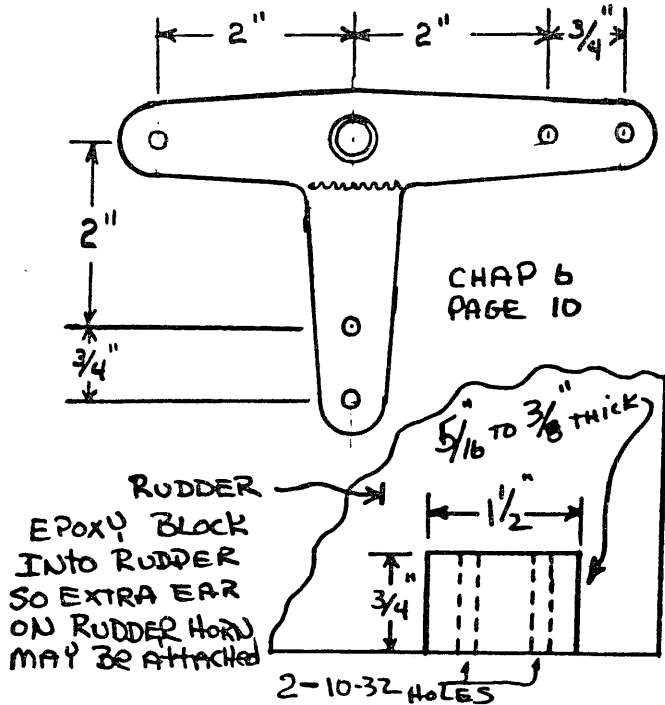 2" 2" 3/4"
2"
3/4"
CHAP 6
PAGE 10
5/16" TO 3/8" THICK
RUDDER
1 1/2"
3/4"
EPOXY BLOCK
INTO RUDDER
SO EXTRA EAR
ON RUDDER HORN
MAY BE ATTACHED
2-10-32 HOLES